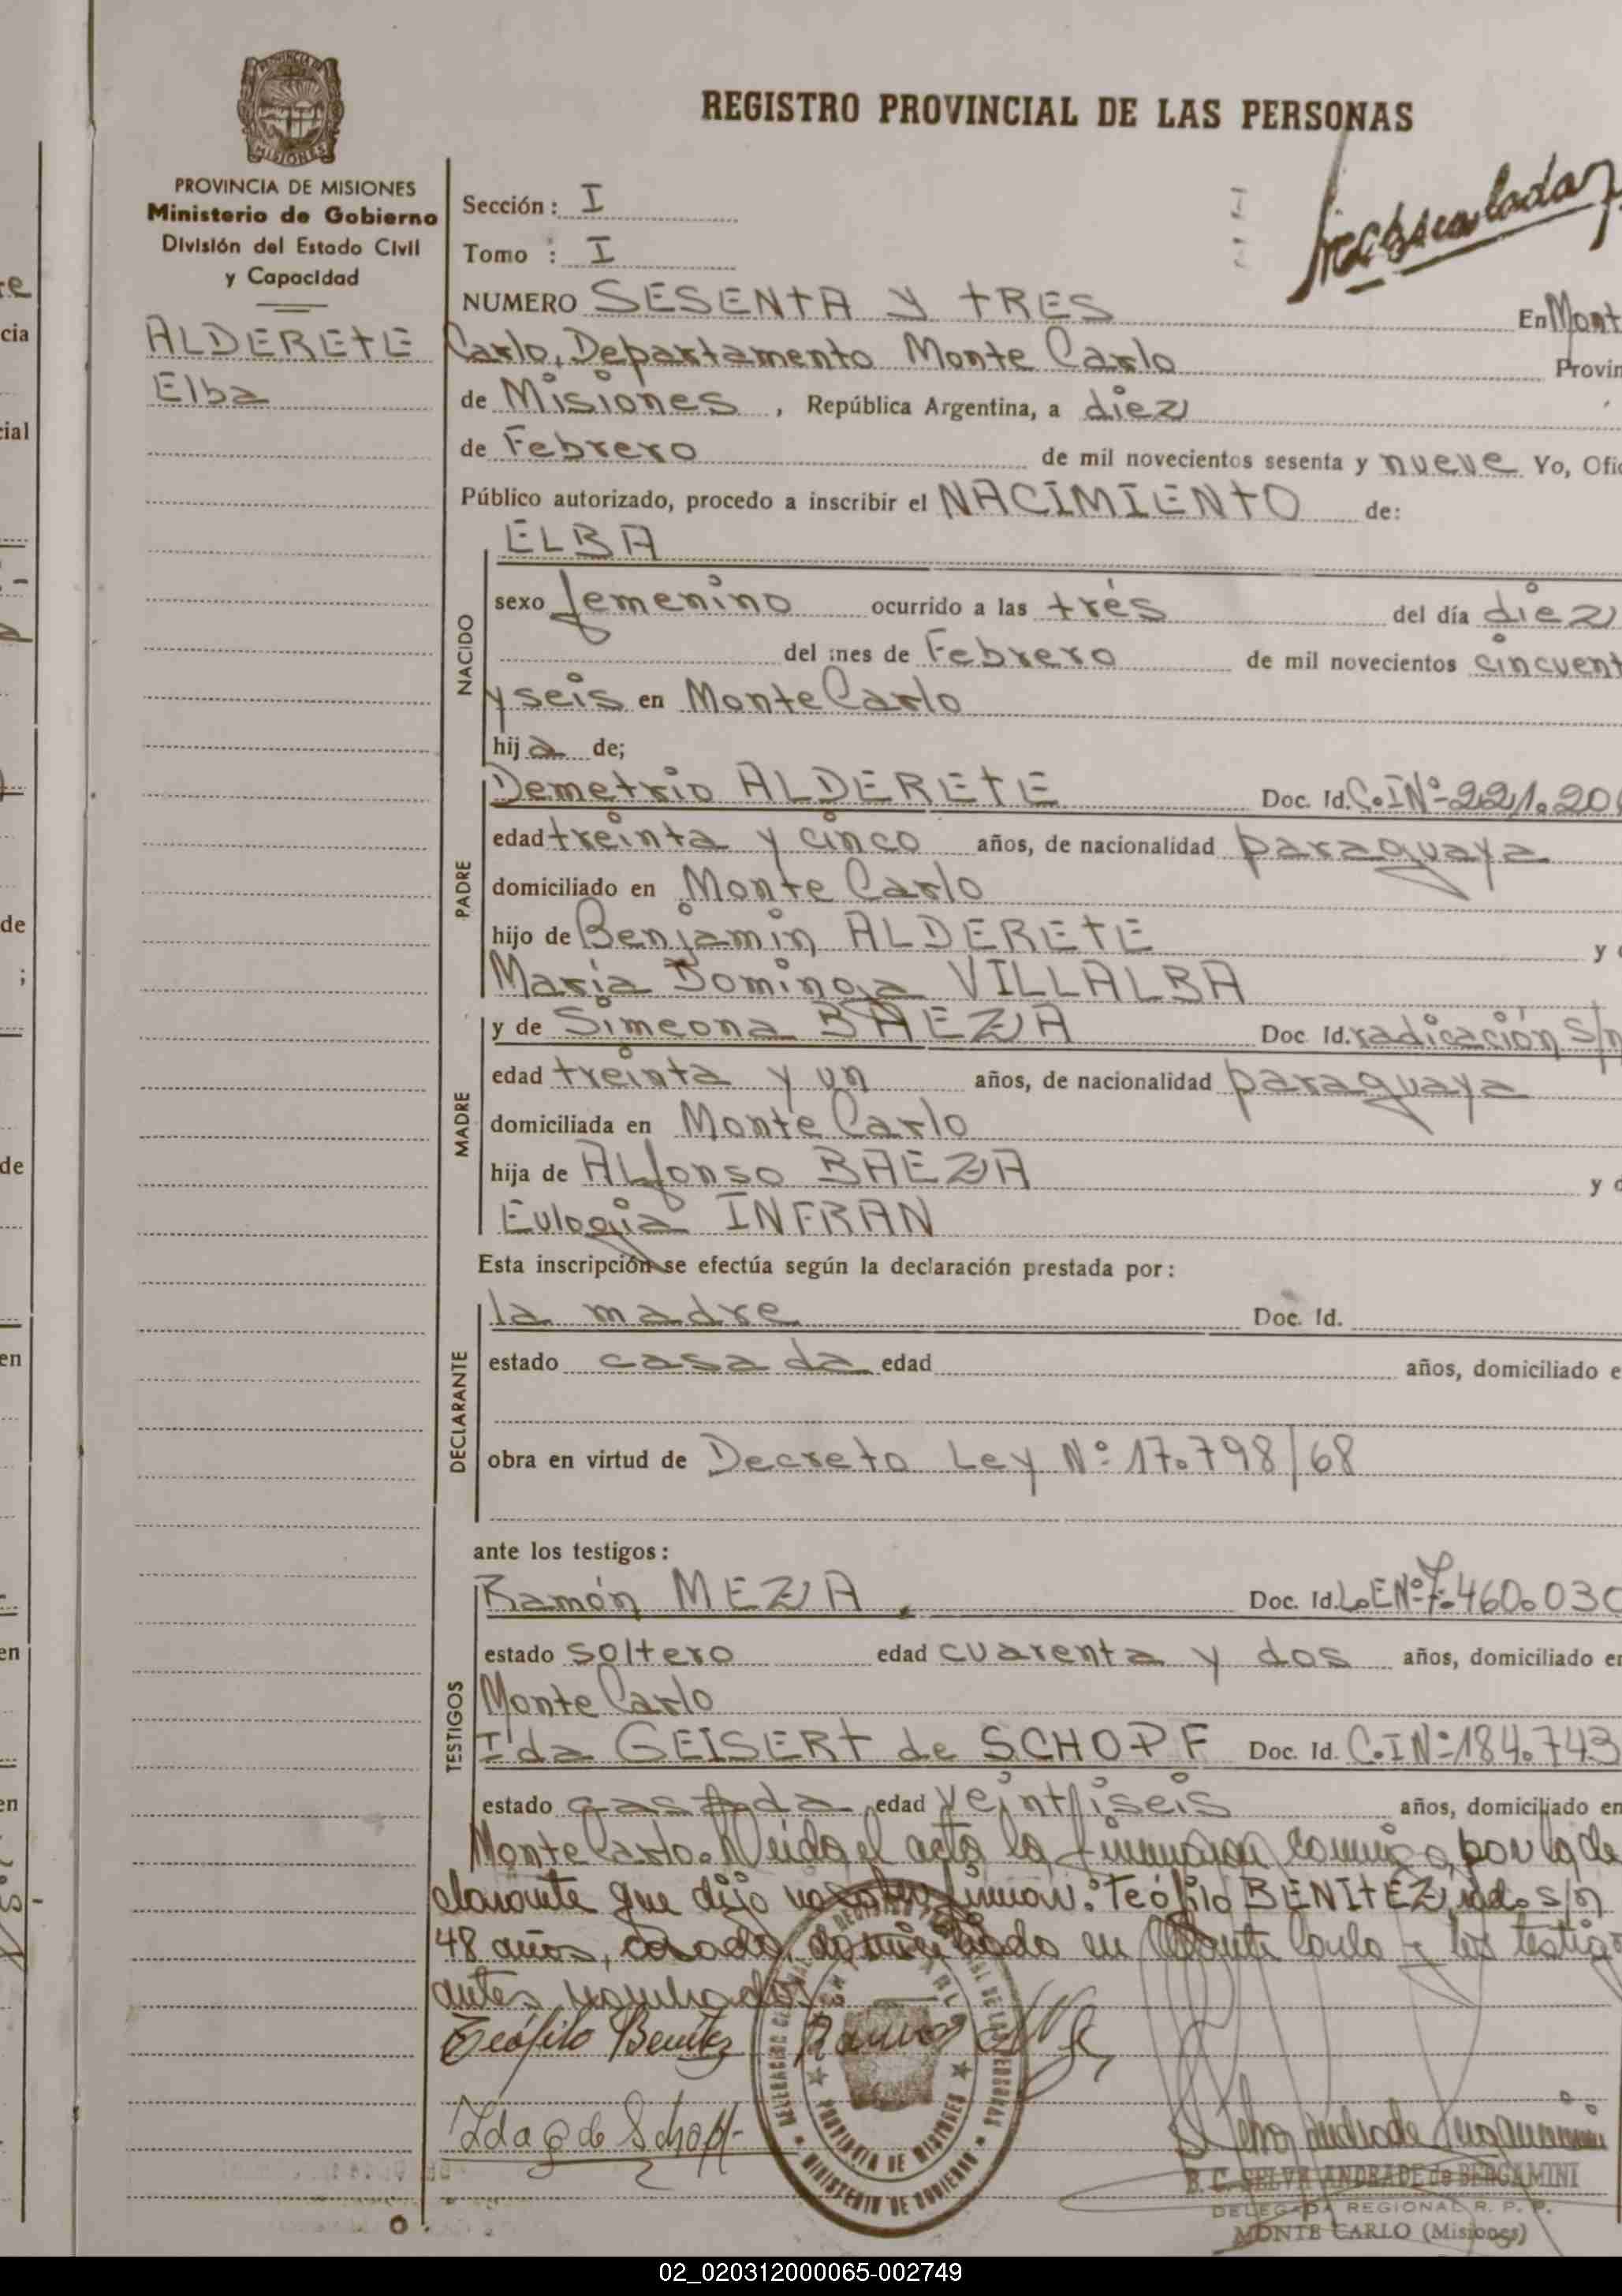 PROVINCIA DE MISIONES
Ministerio de Gobierno
División del Estado Civil
y Capacidad
ALDERETE
Elba
REGISTRO PROVINCIAL DE LAS PERSONAS
Sección: I
Tomo : I
NUMERO SESENTA Y TRES En Mont
Carlo, Departamento Monte Carlo Provin
de Misiones, República Argentina, a diez
de Febrero de mil novecientos sesenta y nueve Yo, Ofic
Público autorizado, procedo a inscribir el NACIMIENTO de:
ELBA
NACIDO
sexo femenino ocurrido a las tres del día diez
del mes de Febrero de mil novecientos cincuent
y seis en Monte Carlo
hija de;
PADRE
Demetrio ALDERETE Doc. Id. C.I Nº 221.20
edad treinta y cinco años, de nacionalidad paraguaya
domiciliado en Monte Carlo
hijo de Benjamin ALDERETE y
María Dominga VILLALBA
MADRE
y de Simeona BAEZA Doc Id. radicación S/n
edad treinta y un años, de nacionalidad paraguaya
domiciliada en Monte Carlo
hija de ALfonso BAEZA y
Eulogia INFRAN
Esta inscripción se efectúa según la declaración prestada por:
DECLARANTE
la madre Doc. Id.
estado casada edad años, domiciliado e
obra en virtud de Decreto Ley Nº 17.798/68
ante los testigos:
TESTIGOS
Ramón MEZA, Doc. Id. L.E Nº 7.460.030
estado soltero edad cuarenta y dos años, domiciliado en
Monte Carlo
Ida GEISERT de SCHOPF Doc. Id. C.I Nº 184.743
estado casada edad veintiseis años, domiciliado en
Monte Carlo. Leída el acta la firman conmigo, por la de
clarante que dijo no firmar: Teófilo BENITEZ, s/n
48 años, casado, domiciliado en Monte Carlo y los testigo
antes nombrados
Teófilo Benítez Ramón
Ida G de Schopf
PROVINCIA DE MISIONES
MINISTERIO DE GOBIERNO
B. C. SELVA ANDRADE de BERGAMINI
DELEGADA REGIONAL R. P. P.
MONTE CARLO (Misiones)
02_020312000065-002749